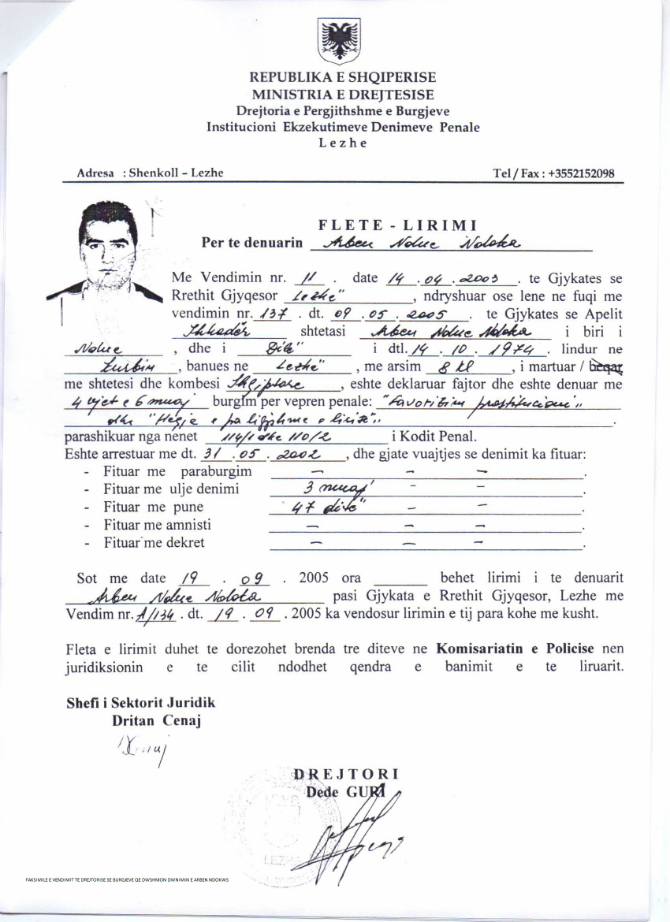 REPUBLIKA E SHQIPERISE
MINISTRIA E DREJTESISE
Drejtoria e Pergjithshme e Burgjeve
Institucioni Ekzekutimeve Denimeve Penale
Lezhe
Adresa : Shenkoll - Lezhe Tel / Fax : +3552152098
FLETE - LIRIMI
Per te denuarin Arben Ndue Ndoka
Me Vendimin nr. 11 . date 14 . 04 . 2003 . te Gjykates se
Rrethit Gjyqesor Lezhe" , ndryshuar ose lene ne fuqi me
vendimin nr. 137 . dt. 09 . 05 . 2005 . te Gjykates se Apelit
Shkodër shtetasi Arben Ndue Ndoka i biri i
Ndue , dhe i i dtl. 14 . 10 . 1974 . lindur ne
Zurbin , banues ne Lezhe" , me arsim 8 kl , i martuar / beqar
me shtetesi dhe kombesi Shqiptare , eshte deklaruar fajtor dhe eshte denuar me
4 vjet e 6 muaj burgim per vepren penale: "Favorizim prostitucioni"
dhe "Heqje e paligjshme e lirisë" .
parashikuar nga nenet 114/1 dhe 110/2 i Kodit Penal.
Eshte arrestuar me dt. 31 . 05 . 2002 , dhe gjate vuajtjes se denimit ka fituar:
- Fituar me paraburgim — — — .
- Fituar me ulje denimi 3 muaj - - .
- Fituar me pune 47 ditë" - - .
- Fituar me amnisti — — — .
- Fituar me dekret — — — .
Sot me date 19 . 09 . 2005 ora ______ behet lirimi i te denuarit
Arben Ndue Ndoka pasi Gjykata e Rrethit Gjyqesor, Lezhe me
Vendim nr. A/134 . dt. 19 . 09 . 2005 ka vendosur lirimin e tij para kohe me kusht.
Fleta e lirimit duhet te dorezohet brenda tre diteve ne Komisariatin e Policise nen
juridiksionin e te cilit ndodhet qendra e banimit e te liruarit.
Shefi i Sektorit Juridik
Dritan Cenaj
DREJTORI
Dede GURI
LEZHE
FAKSIMILE E VENDIMIT TE DREJTORISE SE BURGJEVE QE DWSHMON DWNIMIN E ARBEN NDOKWS